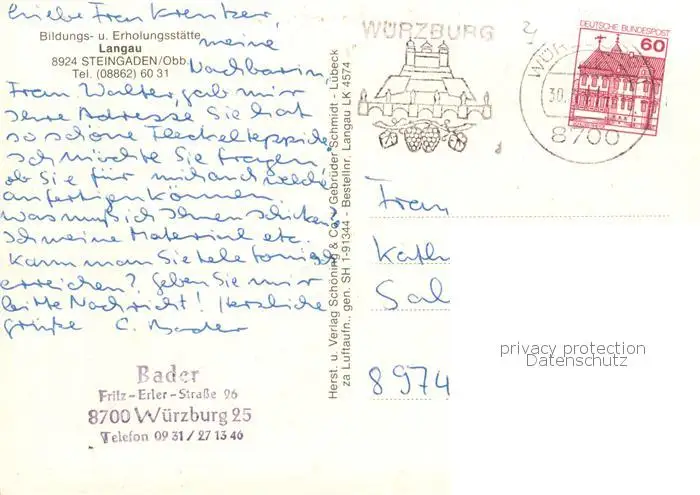 Liebe Frau Kreutzer,
Bildungs- u. Erholungsstätte
Langau
8924 STEINGADEN/Obb.
Tel. (08862) 60 31
meine
Nachbarin,
Frau Walter, gab mir
Ihre Adresse Sie hat
so schöne Fleckelteppiche
ich möchte Sie fragen
ob Sie für mich auch welche
anfertigen können.
was muß ich Ihnen schicken?
ich meine Material etc.
Kann man Sie telefonisch
erreichen? Geben Sie mir
bitte Nachricht! Herzliche
Grüße C. Bader
Bader
Fritz-Erler-Straße 26
8700 Würzburg 25
Telefon 09 31 / 27 13 46
Herst. u. Verlag Schöning & Co + Gebrüder Schmidt - Lübeck
za Luftaufn., gen. SH 1-91344 - Bestellnr. Langau LK 4574
WÜRZBURG
WÜR
30.
8700
DEUTSCHE BUNDESPOST
60
Frau
Kath
Sal
8974
privacy protection
Datenschutz